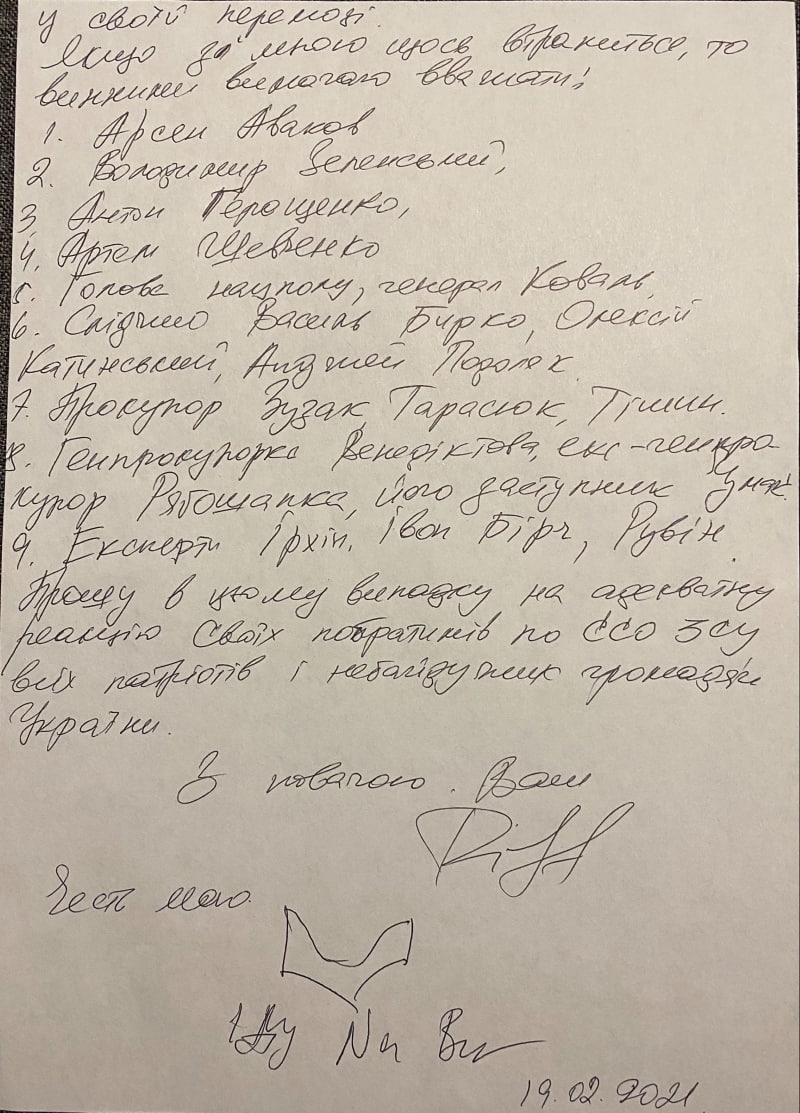 у своїй перемозі.
Якщо зі мною щось втракиться, то
винними вимагаю вважати:
1. Арсен Аваков
2. Володимир Зеленський,
3. Антон Геращенко,
4. Артем Шевченко
5. Голова нацполу, генерал Коваль,
6. Слідчио Василь Бирко, Олексій
Катинський, Анджей Подоляк.
7. Прокурор Зузак, Тарасюк, Тімин.
8. Генпрокурорка Венедіктова, екс-генпро-
курор Рябошапка, його заступник
9. Експерти Ірхін, Івон Бірч, Рувін
Прошу в цьому випадку на адекватну
реакцію своїх побратимів по ССО ЗСУ
всіх патріотів і небайдужих громадян
України.
З повагою. Ваш
Riff
Честь маю.
Іду На Ви
19.02.2021